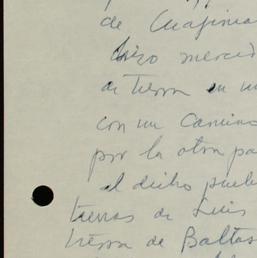 de Cuajinia
hizo merced
de tierra en un
con un camino
por la otra pa
el dicho pueb
tierras de Luis
tierra de Baltas